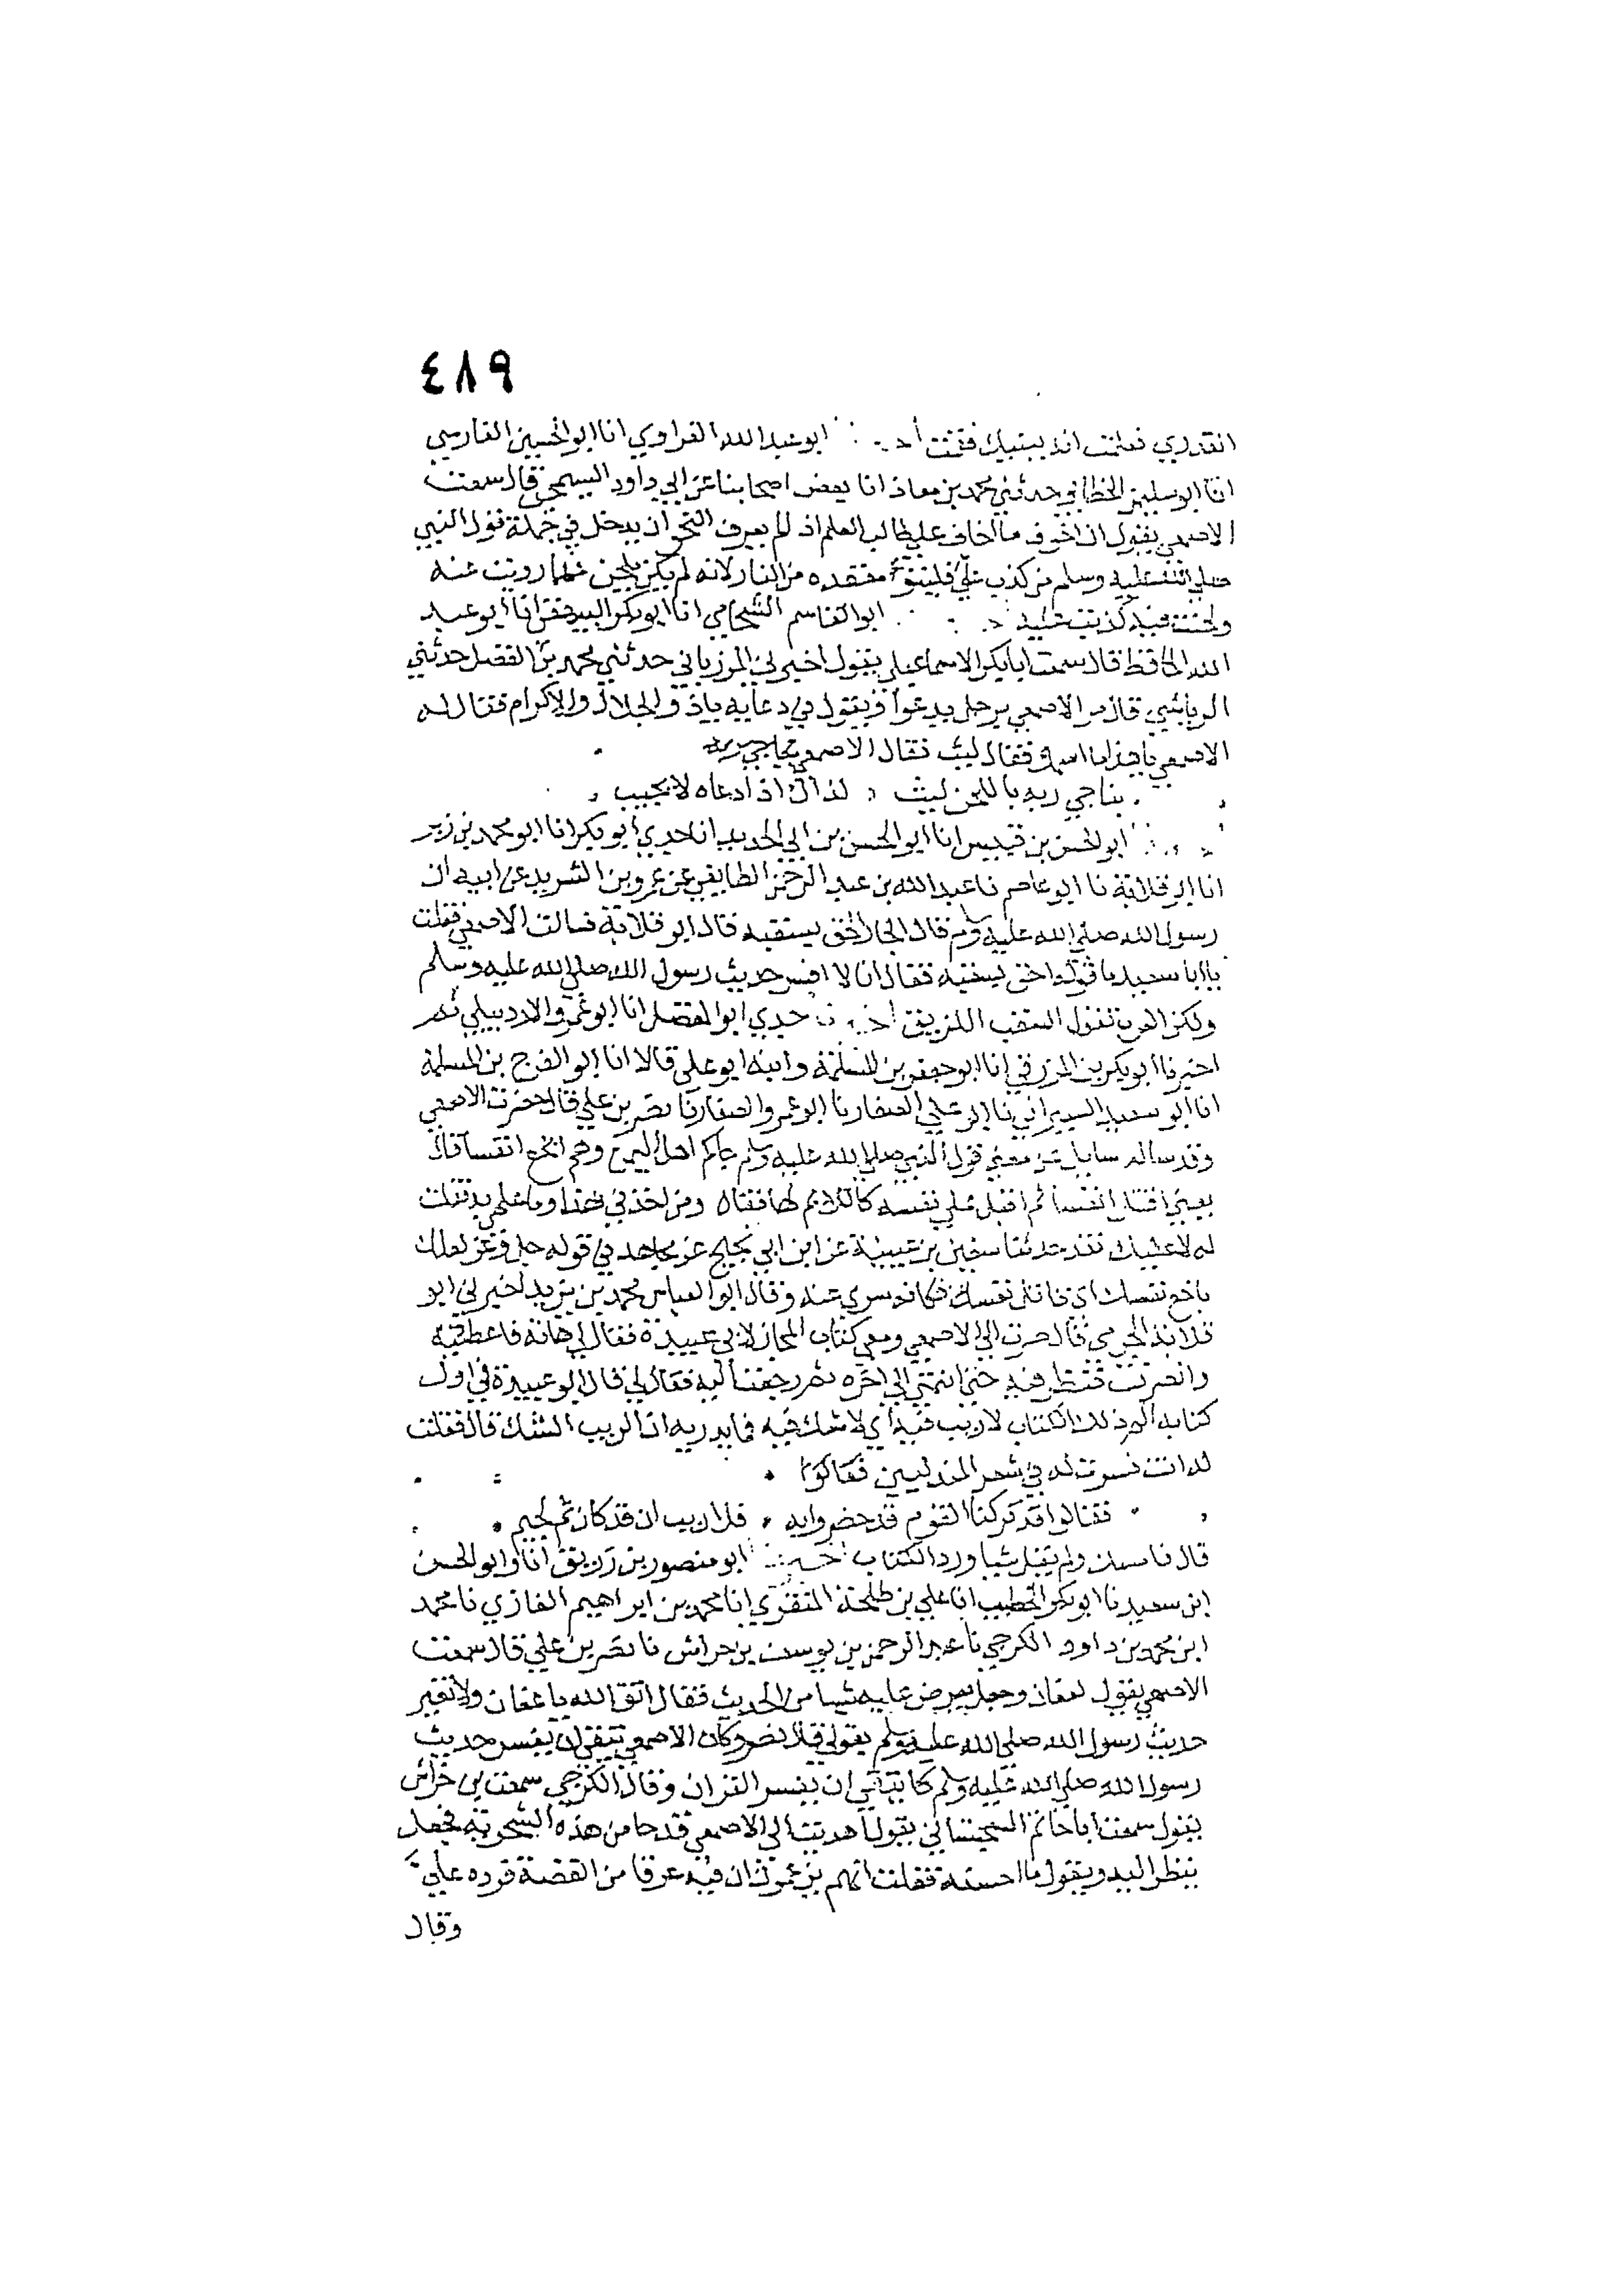 ٤٨٩
انقدري فعلمت انه يبتيك فقمت ابو عبد الله الفراوي انا ابو الحسين الفارسي
انا ابو سليمن الخطابي حدثني محمد بن معاذ انا بعض اصحابنا عن ابي داود السنجي قال سمعت
الاصمعي يقول ان اخوف ما اخاف علي طالب العلم اذا لم يعرف النحو ان يدخل في جملة قول النبي
صلي الله عليه وسلم من كذب علي فليتبوأ مقعده من النار لانه لم يكن يلحن فمهما رويت عنه
ولحنت فيه كذبت عليه ابو القاسم الشحامي انا ابو بكر البيهقي انا ابو عبد
الله الحافظ قال سمعت ابا بكر الاسماعيلي يقول اخبرني المرزباني حدثني محمد بن الفضل حدثني
الرياشي قال مر الاصمعي برجل يدعوا ويقول في دعايه ياذو الجلال والاكرام فقال له
الاصمعي يا هذا ما اسمك فقال ليث فقال الاصمعي
يناجي ربه باللحن ليث لذاك اذا دعاه لا يجيب
ابو الحسن بن قبيس انا ابو الحسن بن ابي الحديد انا جدي ابو بكر انا ابو محمد بن زبر
انا ابو قلابة نا ابو عاصم نا عبد الله بن عبد الرحمن الطايفي عن عمرو بن الشريد عن ابيه ان
رسول الله صلي الله عليه وسلم قال الجار احق بسقبه قال ابو قلابة فسالت الاصمعي فقلت
يا ابا سعيد ما قوله احق بسقبه فقال انا لا افسر حديث رسول الله صلي الله عليه وسلم
ولكن العرب تقول السقب اللزيق جدي ابو المفضل انا ابو عمرو الاردبيلي ثم
اخبرنا ابو بكر بن المزرفي انا ابو جعفر بن المسلمة وابنه ابو علي قالا انا ابو الفرج بن المسلمة
انا ابو سعيد السيرافي نا ابو علي الصفار نا ابو عمرو الصفار نا نصر بن علي قال حضرت الاصمعي
وقد ساله سايل عن معني قول النبي صلي الله عليه وسلم جاكم اهل اليمن وهم انخع انفسا قال
يعني اقتل انفسا ثم اقبل علي نفسه كاللايم لها فقال ومن اخذني بهذا وما علمي به فقلت
له لا عليك فقد حدثنا سفين بن عيينة عن ابن ابي نجيح عن مجاهد في قوله جل وعز لعلك
باخع نفسك اي قاتل نفسك فكانه سري عنه وقال ابو العباس محمد بن يزيد اخبرني ابو
قلابة الجرمي قال صرت الي الاصمعي ومعي كتاب المجاز لابي عبيدة فقال لي هاته فاعطيته
وانصرفت فنظر فيه حتي انتهي الي اخره ثم رجعت اليه فقال لي قال ابو عبيدة في اول
كتابه الم ذلك الكتاب لا ريب فيه اي لا شك فيه فما يدريه ان الريب الشك قال فقلت
له انت فسرت له في شعر الهذليين
فقالوا قد تركنا القوم قد حضروا به فلا ريب ان قد كان ثم لحيم
قال فامسك ولم يقل شيا ورد الكتاب ابو منصور بن زريق انا وابو الحسن
ابن سعيد نا ابو بكر الخطيب انا علي بن طلحة المقري انا محمد بن ابراهيم الغازي نا محمد
ابن محمد بن داود الكرجي نا عبد الرحمن بن يوسف بن خراش نا نصر بن علي قال سمعت
الاصمعي يقول لعفان وجعل يعرض عليه شيا من الحديث فقال اتق الله يا عفان ولا تغير
حديث رسول الله صلي الله عليه وسلم بقولي قال نصر وكان الاصمعي يتقي ان يفسر حديث
رسول الله صلي الله عليه وسلم كما يتقي ان يفسر القران وقال الكرجي سمعت بن خراش
يقول سمعت ابا حاتم السجستاني يقول اهديت الي الاصمعي قدحا من هذه السجزية فجعل
ينظر اليه ويقول ما احسنه فقلت انهم يزعمون ان فيه عرقا من الفضة فرده علي
وقال